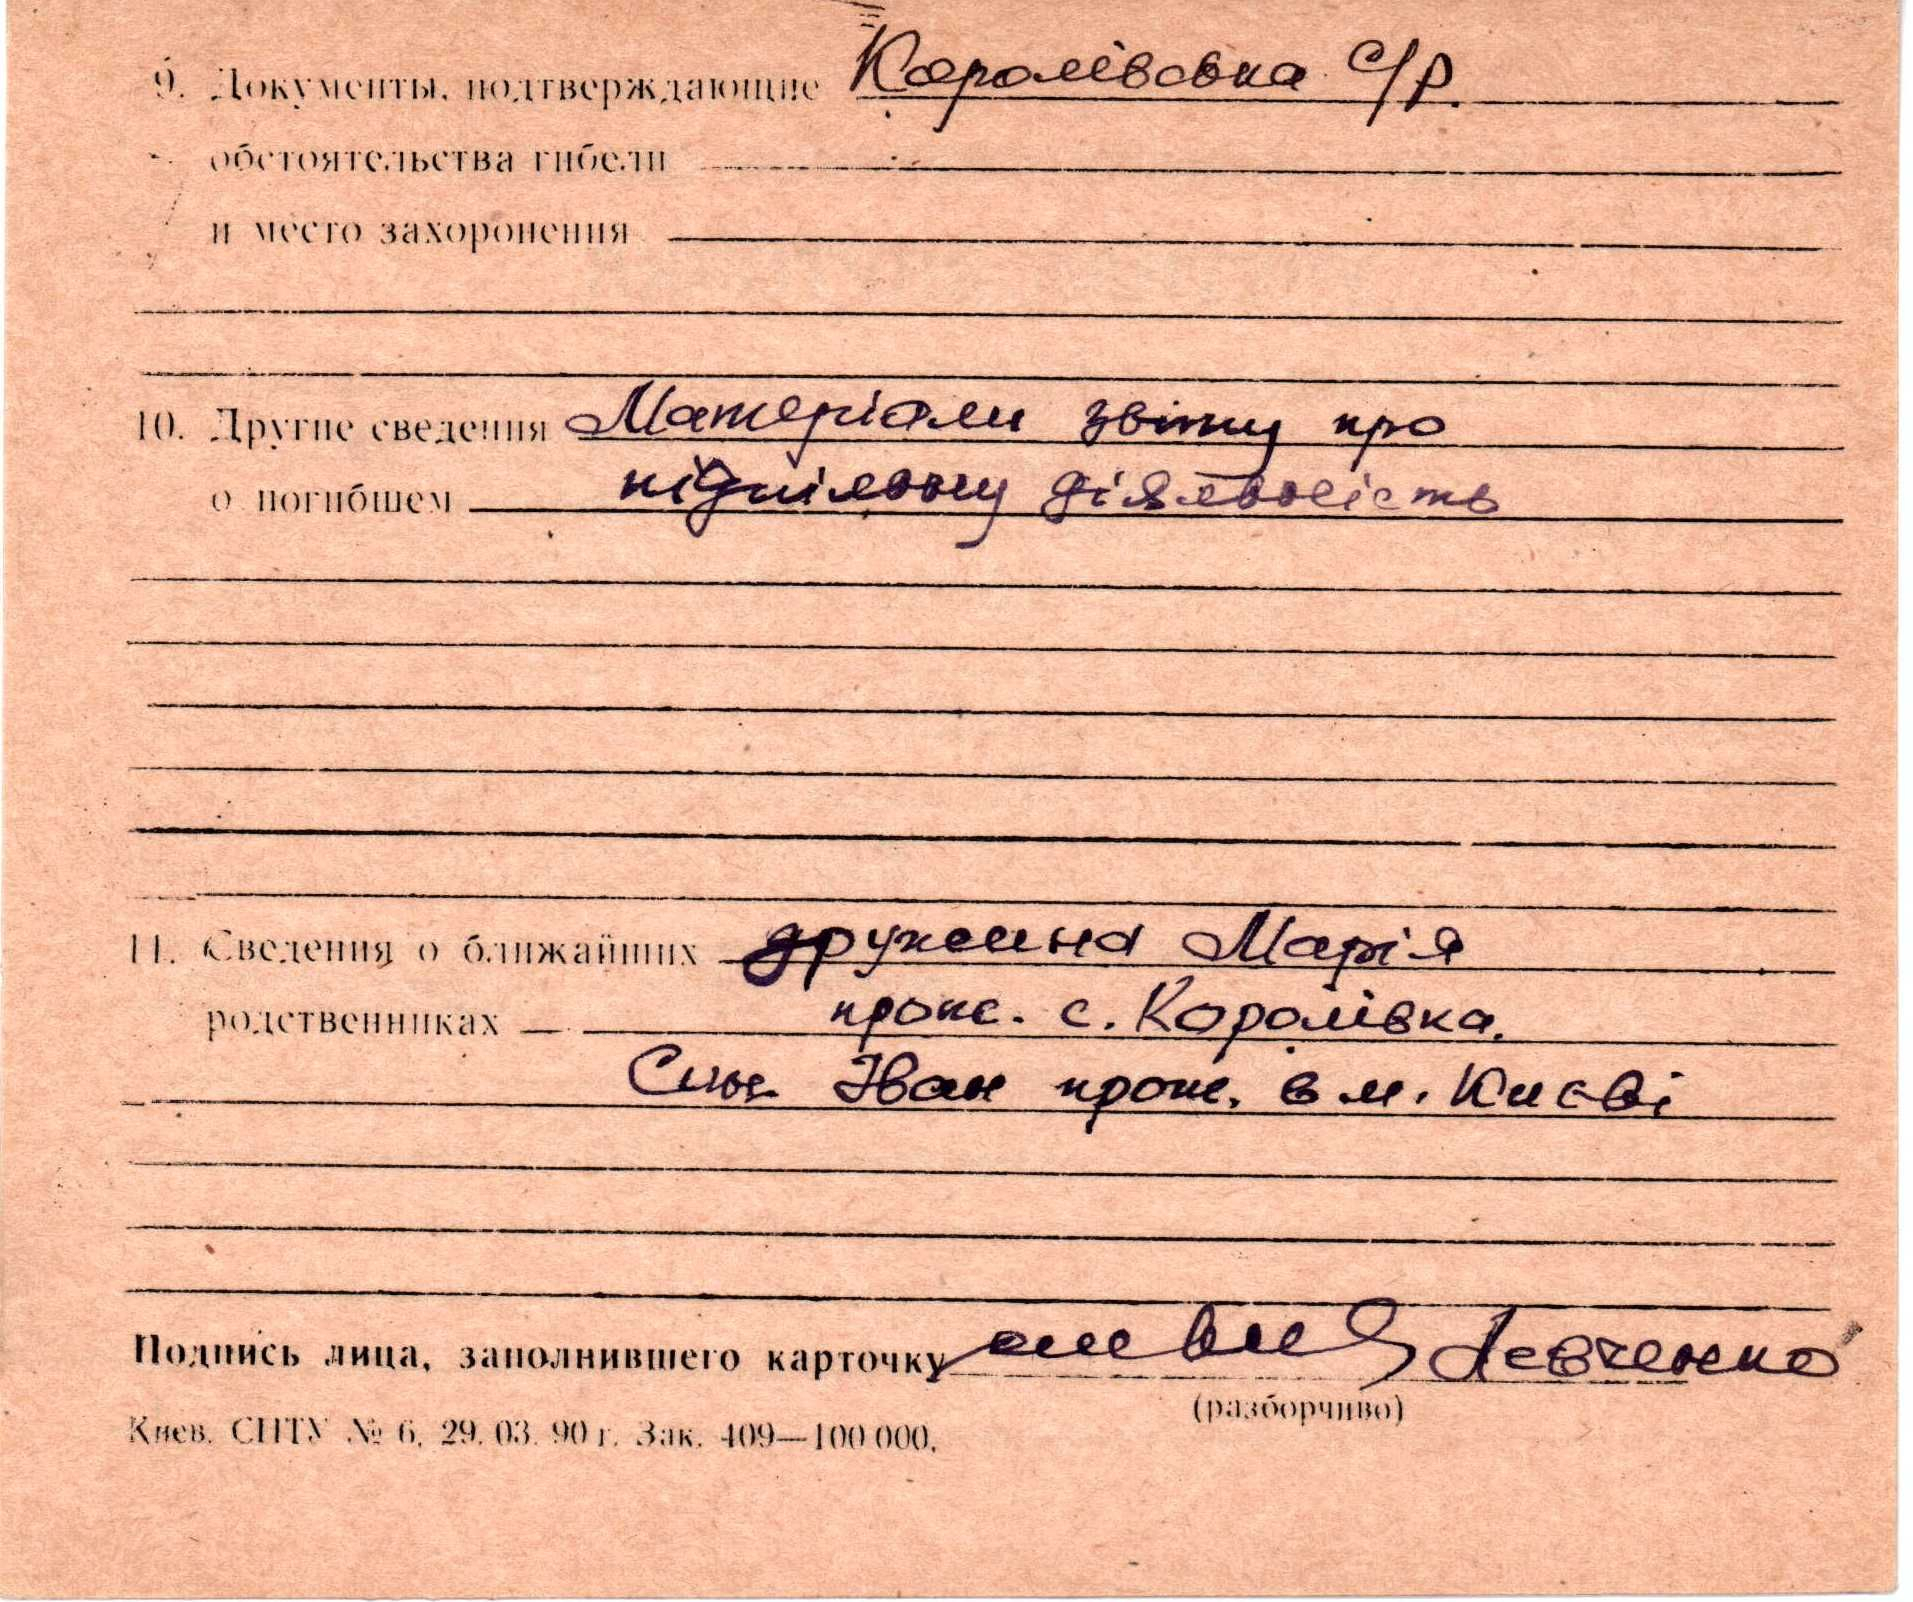 9. Документы, подтверждающие Королівська с/р.
обстоятельства гибели
и место захоронения
10. Другие сведения Матеріали звіту про
о погибшем підпільну діяльність
11. Сведения о ближайших дружина Марія
родственниках прож. с. Королівка.
Син Іван прож. в м. Києві
Подпись лица, заполнившего карточку Левченко
(разборчиво)
Киев. СПТУ № 6, 29. 03. 90 г. Зак. 409—100 000.